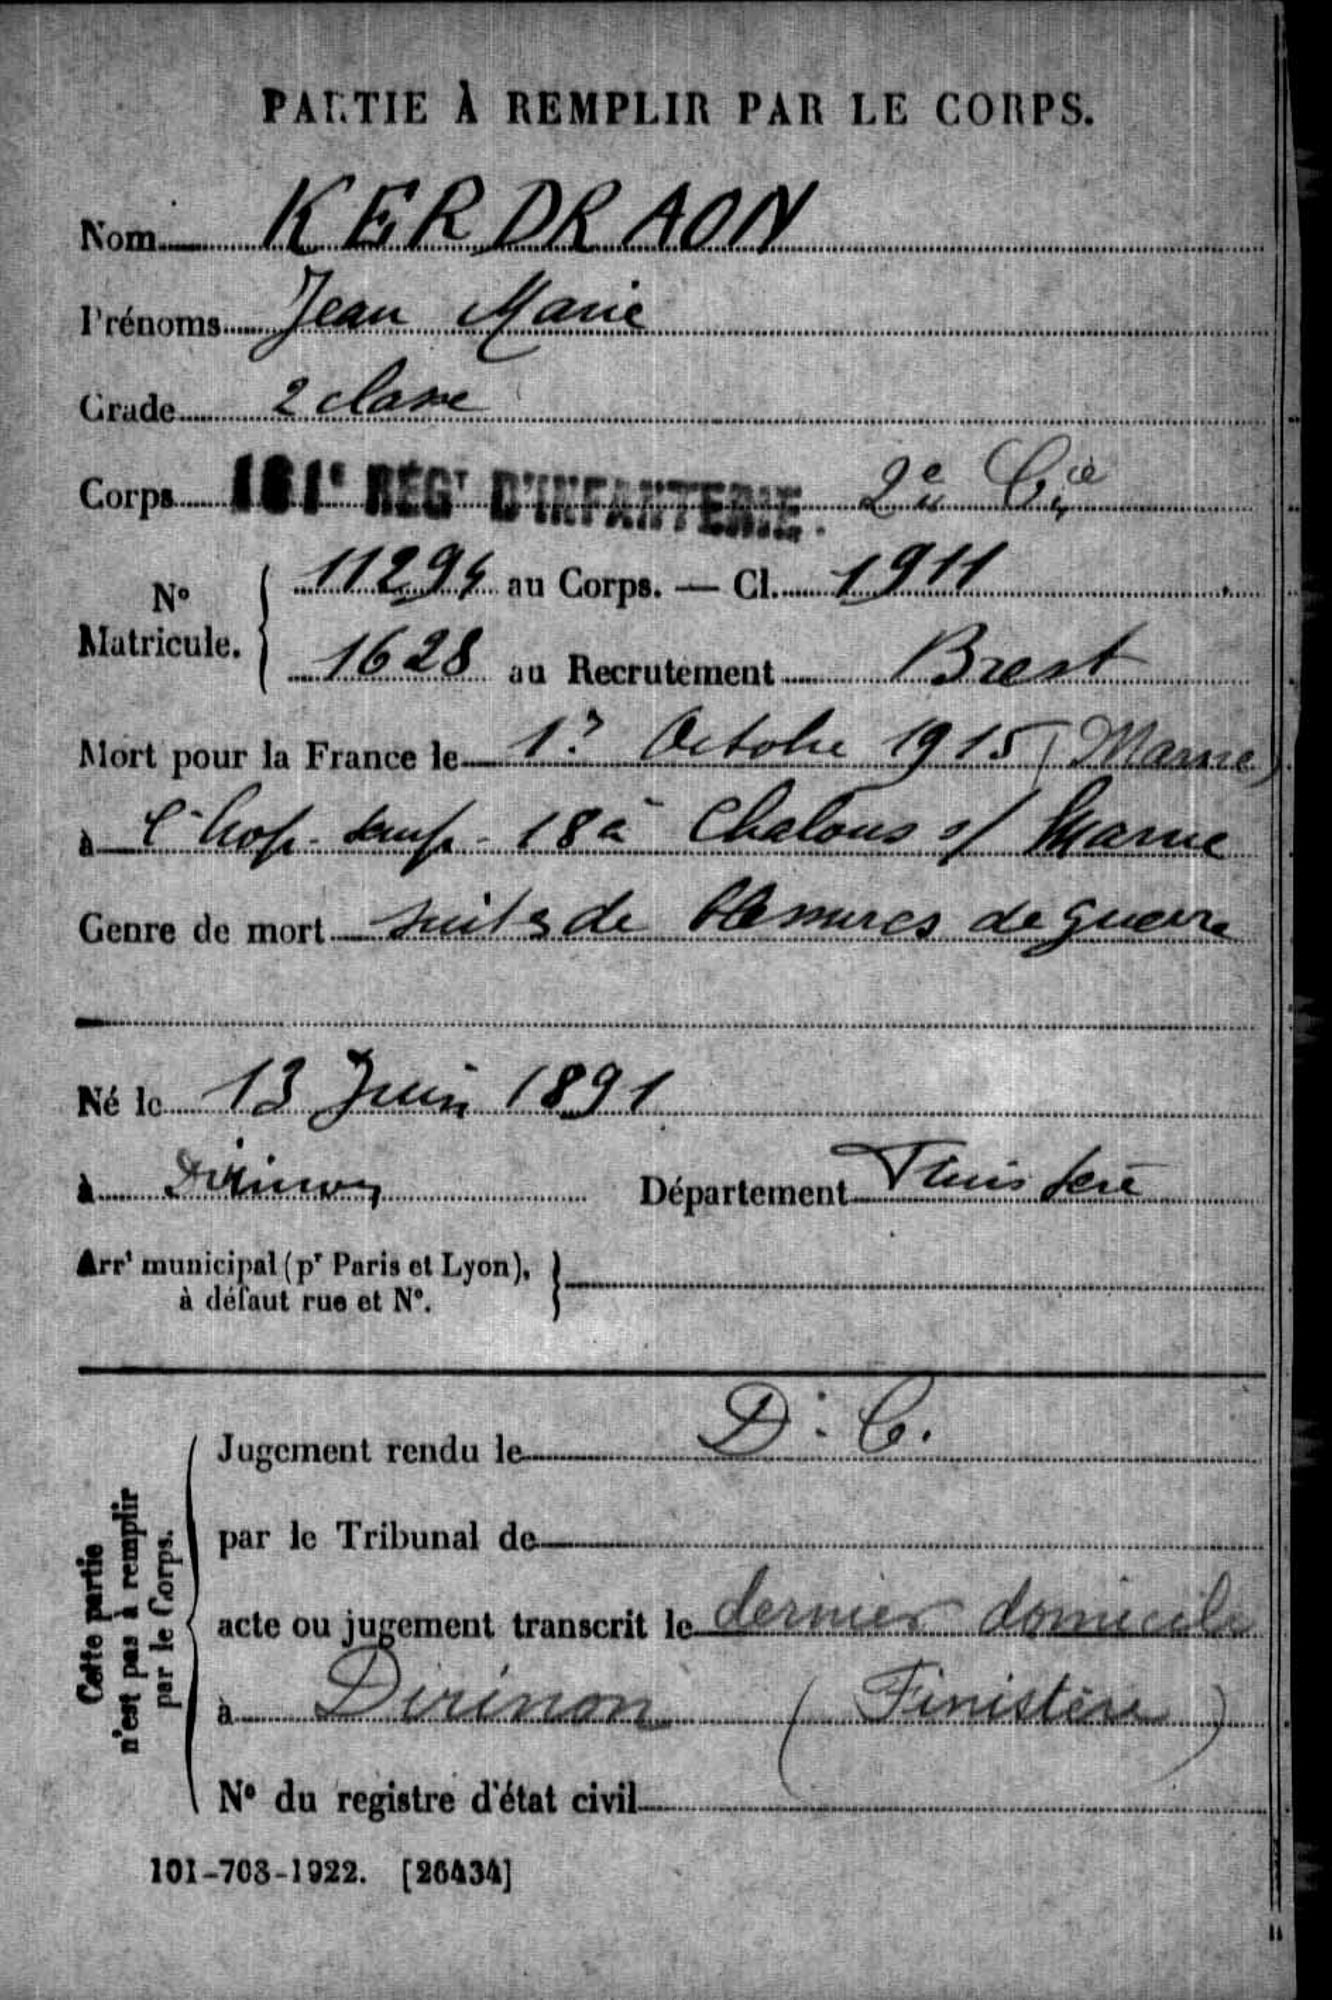 PARTIE À REMPLIR PAR LE CORPS.
Nom KERDRAON
Prénoms Jean Marie
Grade 2 classe
Corps 161e RÉGT D'INFANTERIE. 2e Cie
No Matricule. 11294 au Corps. — Cl. 1911
1628 au Recrutement Brest
Mort pour la France le 1er Octobre 1915 (Marne)
à l'hop. temp. 18 à Chalons s/ Marne
Genre de mort suites de blessures de guerre
Né le 13 Juin 1891
à Dirinon Département Finistère
Arrt municipal (pr Paris et Lyon),
à défaut rue et No.
Cette partie
n'est pas à remplir
par le Corps.
Jugement rendu le D. C.
par le Tribunal de
acte ou jugement transcrit le dernier domicile
à Dirinon (Finistère)
No du registre d'état civil
101-708-1922. [26434]